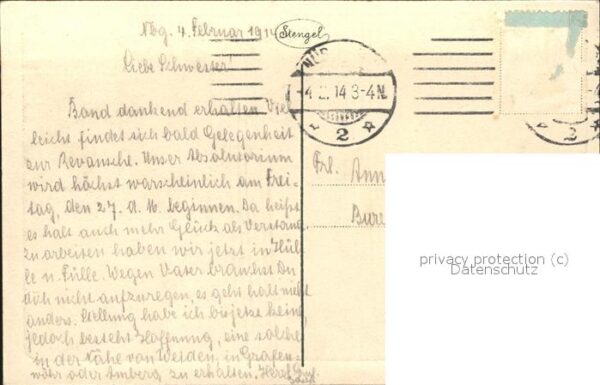 Nbg. 4. Februar 1914
Stengel
Liebe Schwester!
NÜR
-4.2.14 3-4N.
* 2 *
Band dankend erhalten Viel
leicht findet sich bald Gelegenheit
zur Revansche. Unser Absolutorium
wird höchst warscheinlich am Frei-
tag, den 27. d. M. beginnen. Da heißt
es halt auch mehr Glück als Verstand
zu arbeiten haben wir jetzt in Hül
le u. Fülle. Wegen Vater brauchst Du
dich nicht aufzuregen, es geht halt nicht
anders. Stellung habe ich bis jetzt keine
jedoch besteht Hoffnung, eine solche
in der Nähe von Weiden, in Grafen-
wöhr oder Amberg zu erhalten. Herzl.
Frl. Ann
Bure
privacy protection (c)
Datenschutz